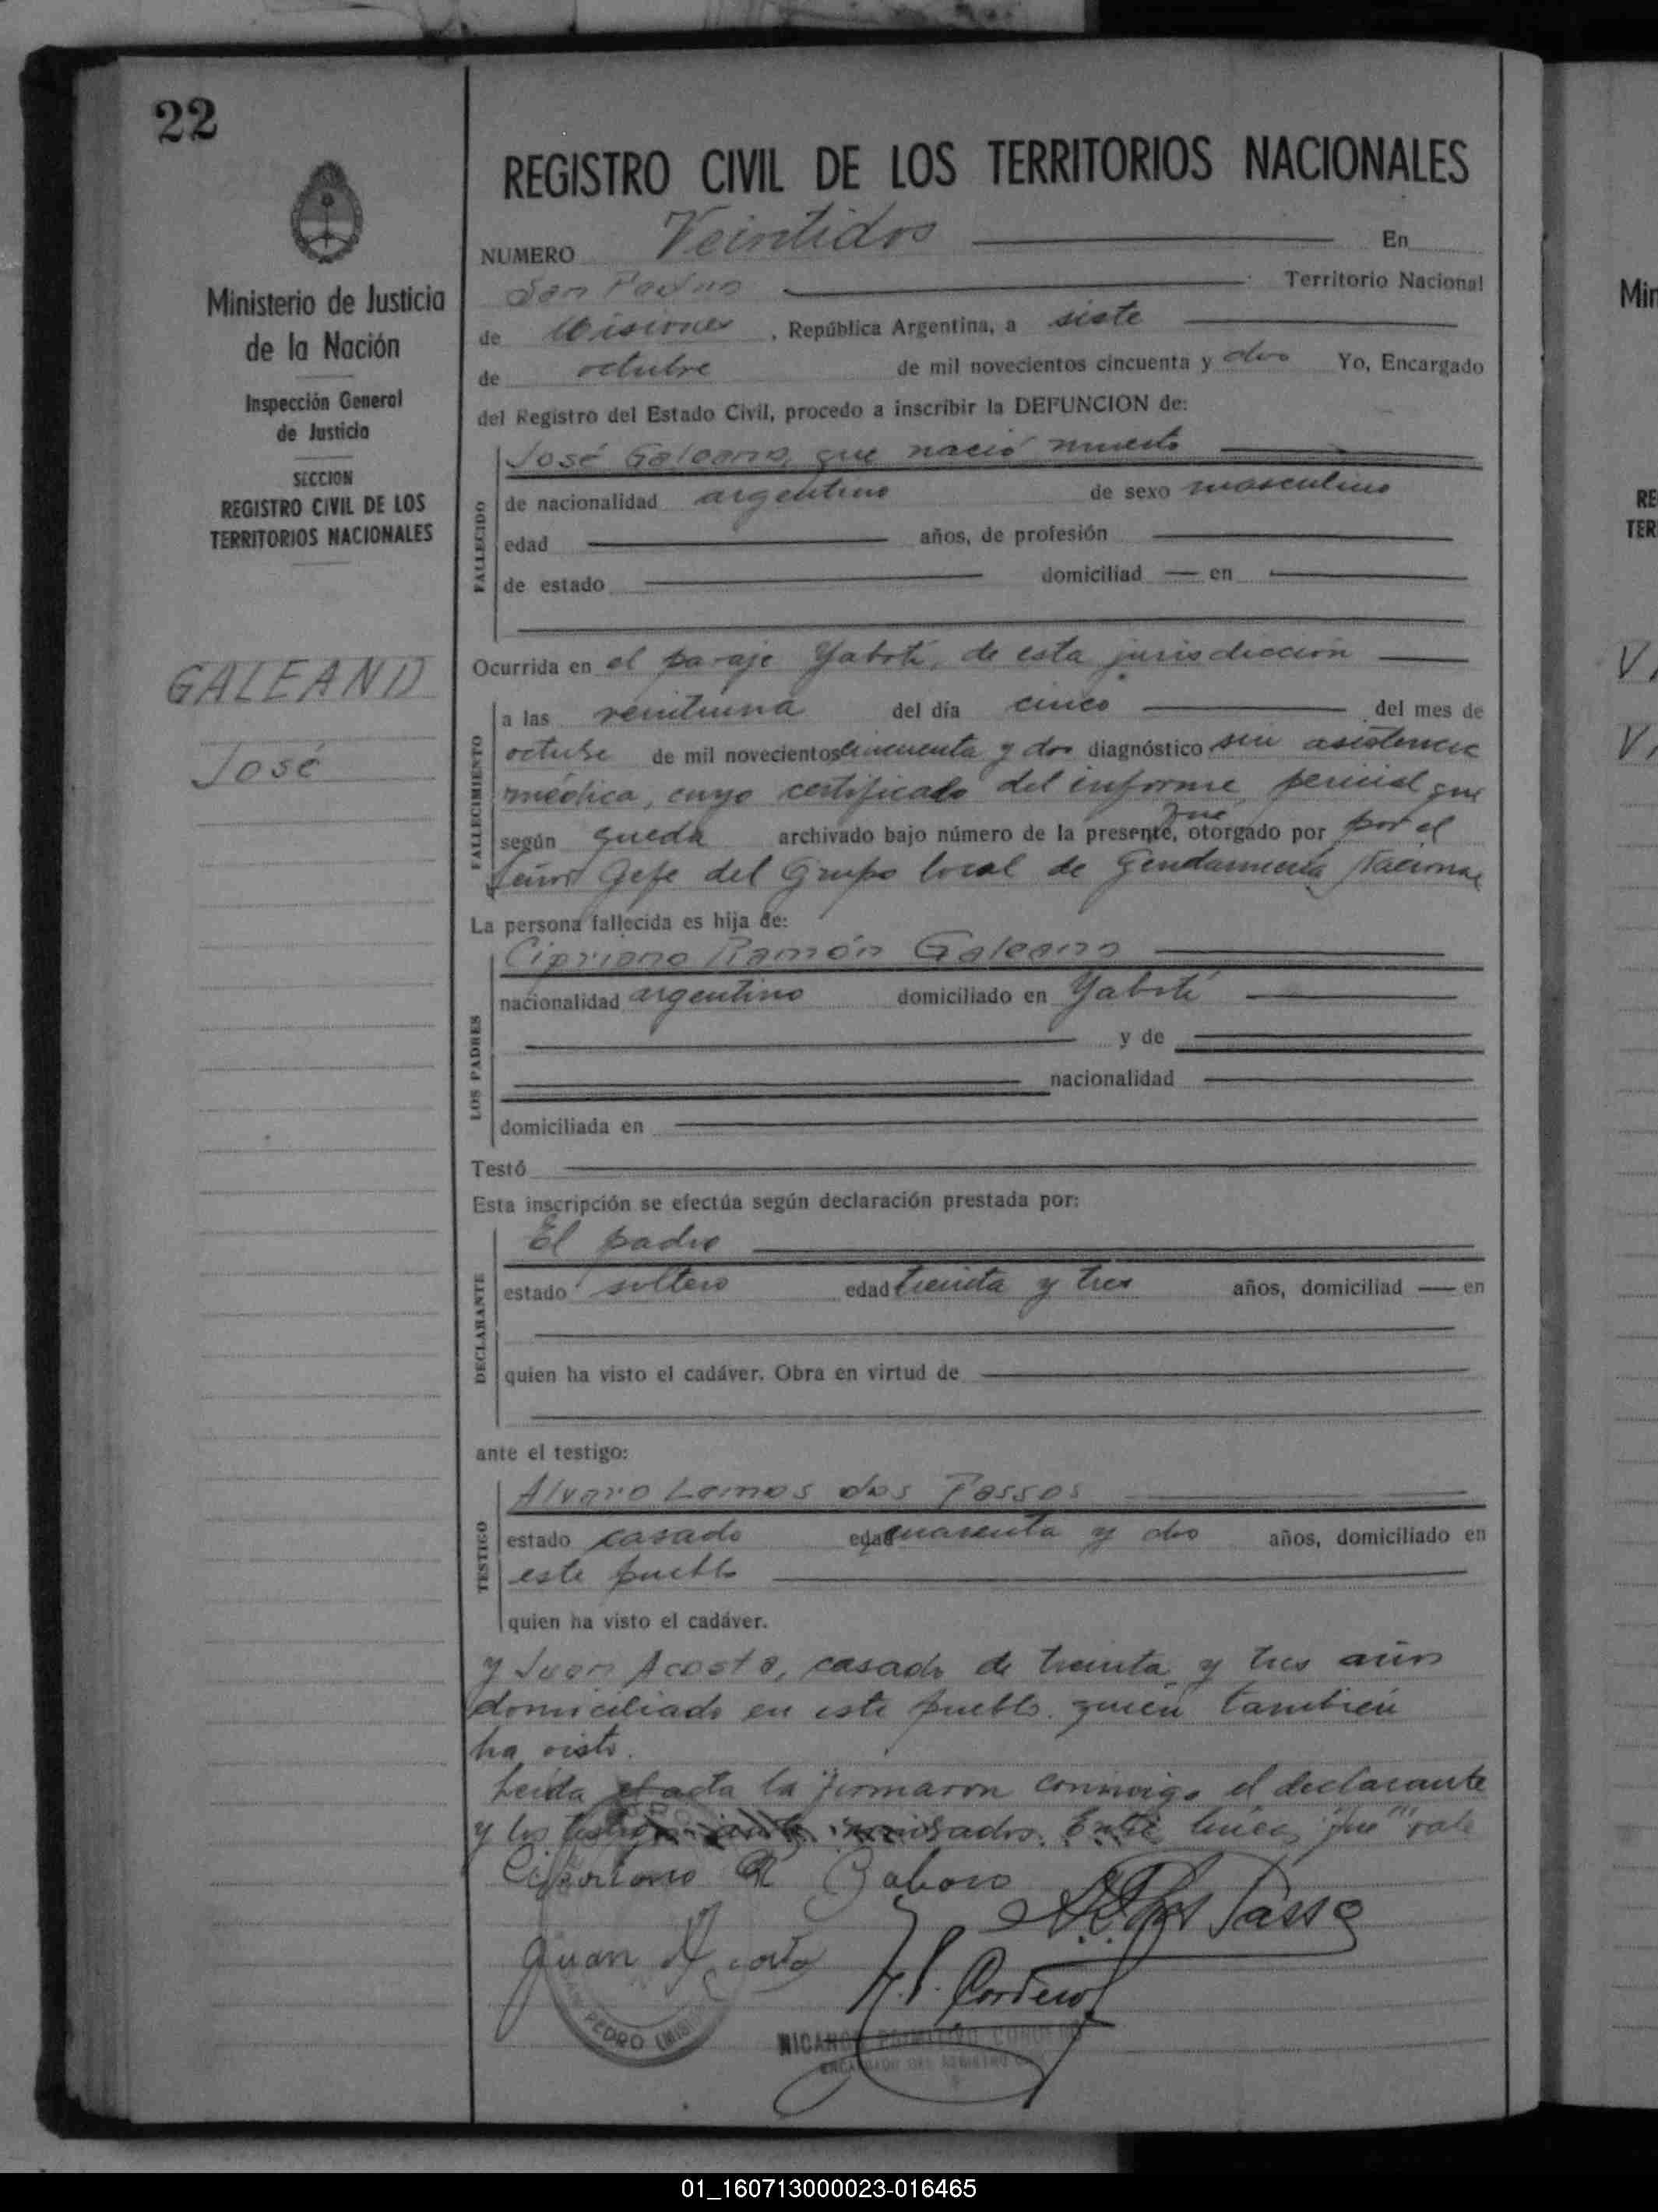 22
Ministerio de Justicia
de la Nación
Inspección General
de Justicia
SECCION
REGISTRO CIVIL DE LOS
TERRITORIOS NACIONALES
GALEANO
José
REGISTRO CIVIL DE LOS TERRITORIOS NACIONALES
NUMERO Veintidos En
San Pedro Territorio Nacional
de Misiones, República Argentina, a siete
de octubre de mil novecientos cincuenta y dos Yo, Encargado
del Registro del Estado Civil, procedo a inscribir la DEFUNCION de:
FALLECIDO
José Galeano, que nació muerto
de nacionalidad argentino de sexo masculino
edad años, de profesión
de estado domiciliad — en
Ocurrida en el paraje Yabotí, de esta jurisdicción
FALLECIMIENTO
a las veintiuna del día cinco del mes de
octubre de mil novecientos cincuenta y dos diagnóstico sin asistencia
médica, cuyo certificado del informe pericial que
según queda archivado bajo número de la presente, fue otorgado por por el
Señor Gefe del Grupo local de Gendarmería Nacional
La persona fallecida es hija de:
LOS PADRES
Cipriano Ramón Galeano
nacionalidad argentino domiciliado en Yabotí
y de
nacionalidad
domiciliada en
Testó
Esta inscripción se efectúa según declaración prestada por:
DECLARANTE
El padre
estado soltero edad treinta y tres años, domiciliad — en
quien ha visto el cadáver. Obra en virtud de
ante el testigo:
TESTIGO
Alvaro Lemos dos Passos
estado casado edad cuarenta y dos años, domiciliado en
este pueblo
quien ha visto el cadáver.
y Juan Acosta, casado de treinta y tres años
domiciliado en este pueblo. quien también
ha visto.
Leída el acta la firmaron conmigo el declarante
y los testigos Entre líneas "fue" vale
Juan Acosta
dos Passo
N. P. Cordero
PEDRO (MISI
NICANOR PRIMITIVO CORDERO
ENCARGADO DEL REGISTRO
01_160713000023-016465